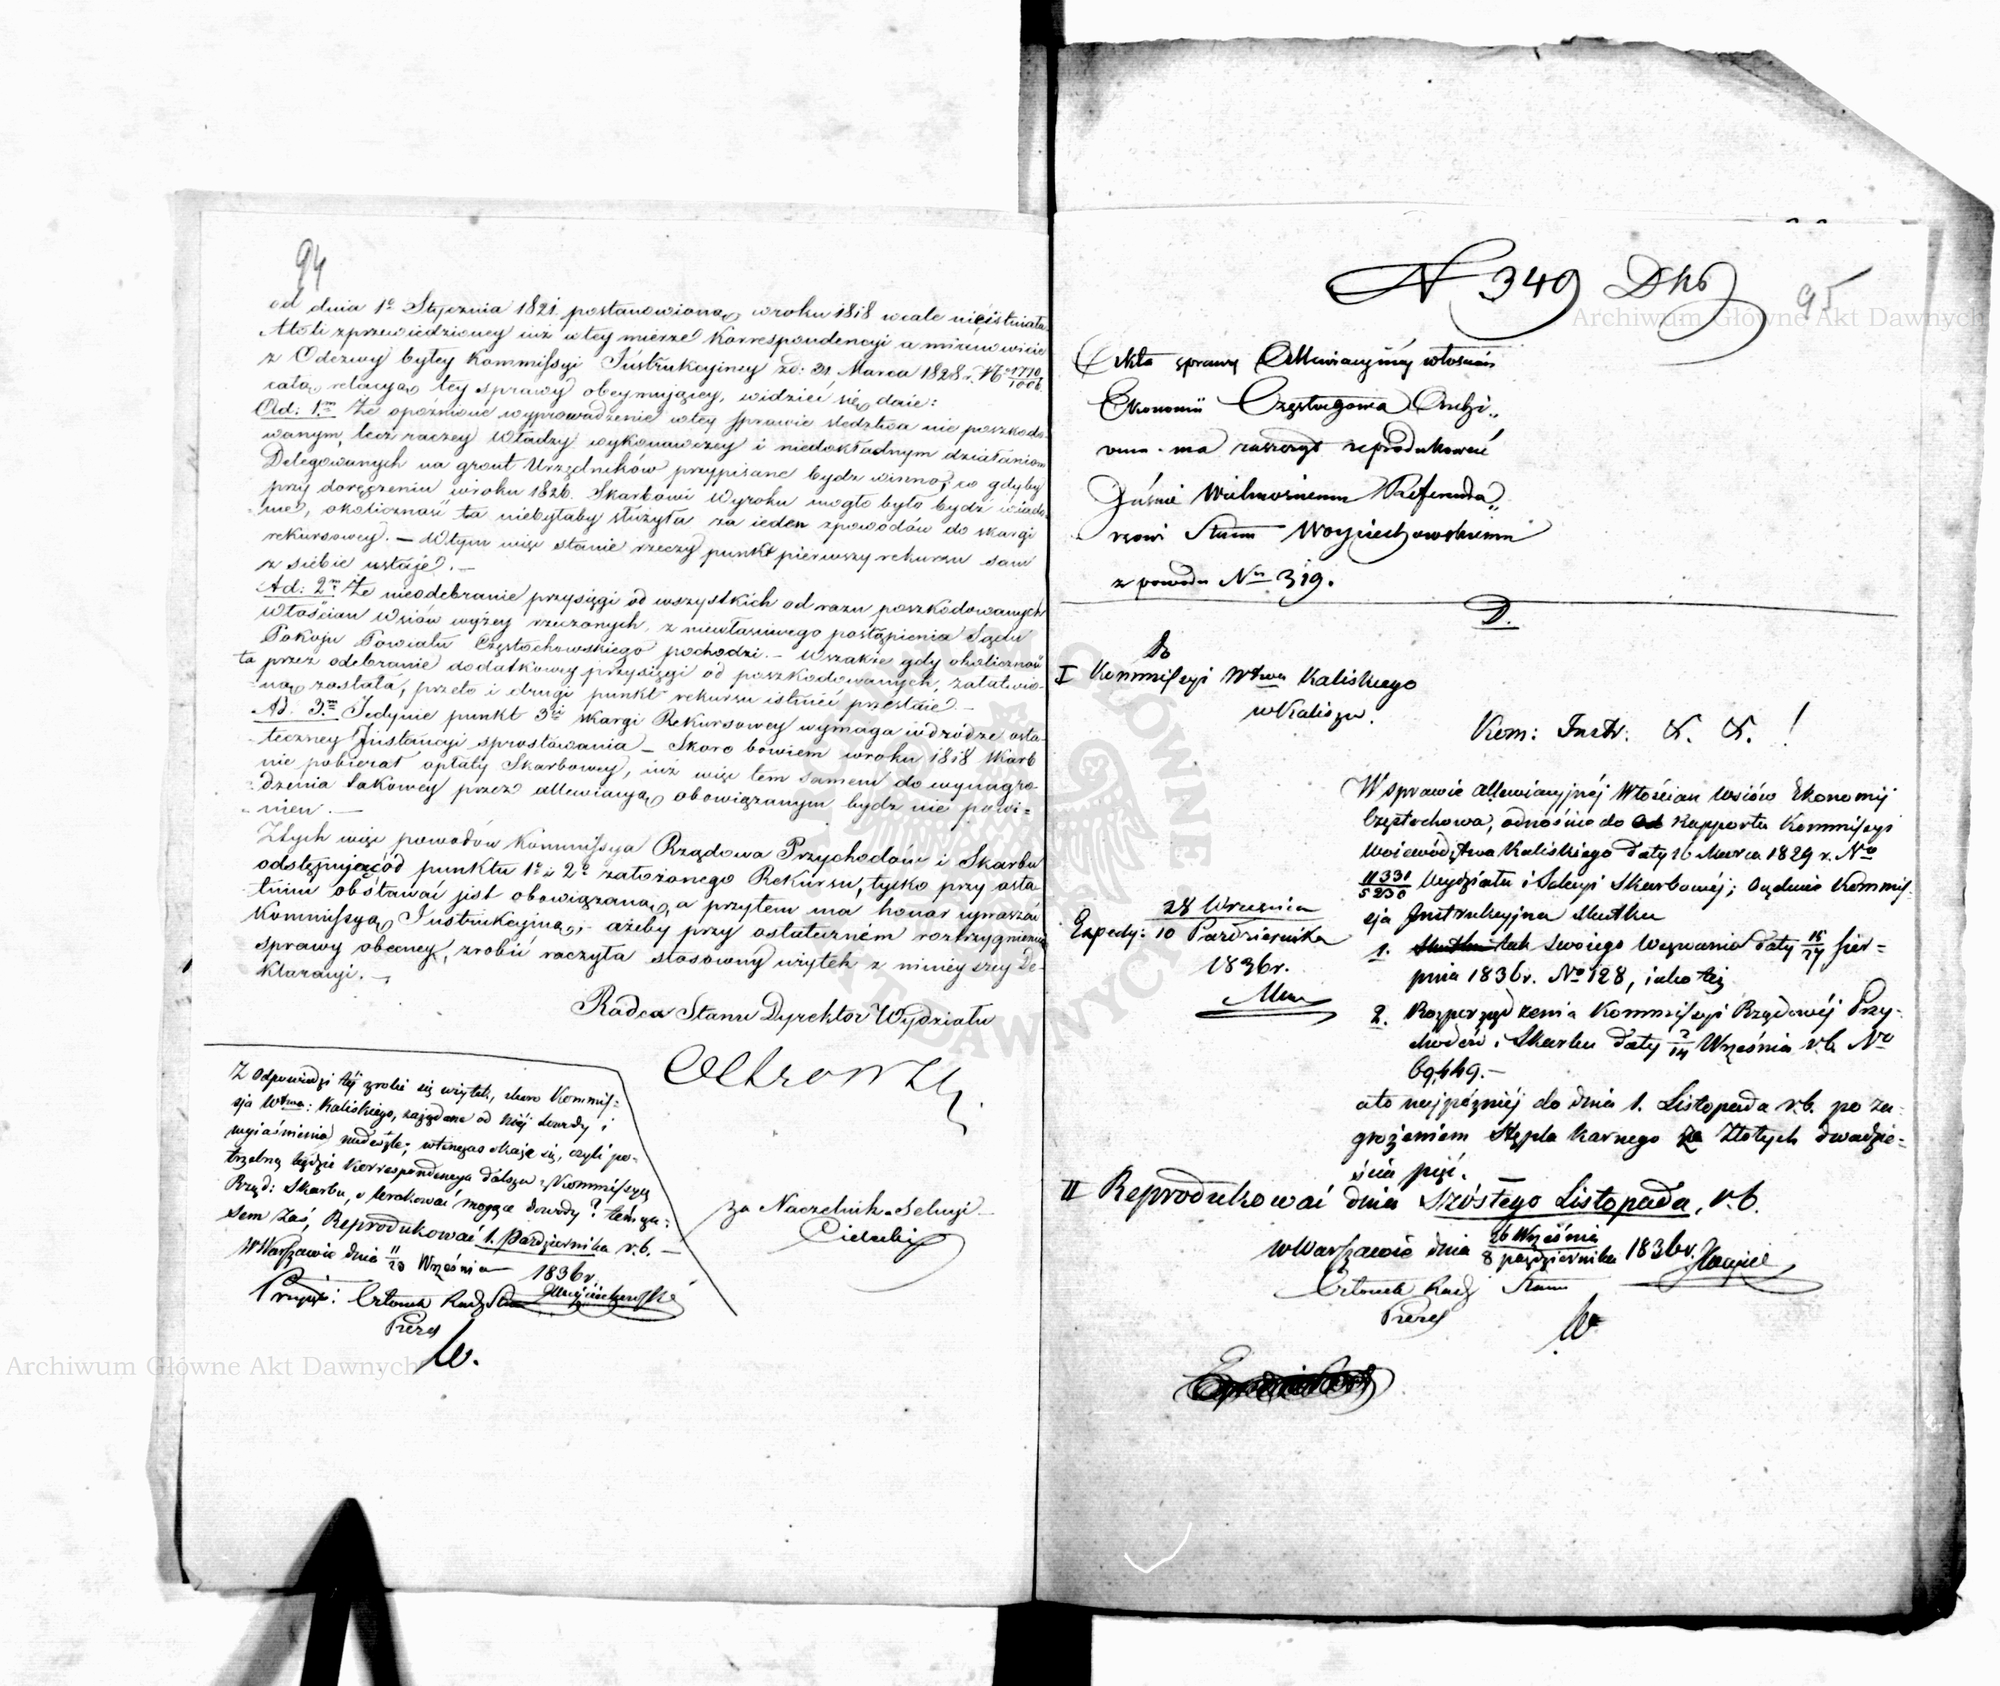 94
od dnia 1º Stycznia 1821 postanowiona, w roku 1818 wcale nieistniała.
Atoli z przewiedzioney już w tey mierze Korrespondencyi a mianowicie
z Odezwy byłey Kommissyi Instrukcyiney zd: 31 Marca 1828 r. Nº 1770/1006
całą relacyą tey sprawy obeymuiącey, widzieć się daie:
Ad: 1m Że opóźnione wyprowadzenie w tey sprawie śledztwa nie poszkodo-
wanym, lecz raczey Władzy wykonawczey i niedokładnym działaniom
Delegowanych na grunt Urzędników przypisane bydź winno, co gdyby
przy doręczeniu w roku 1826. Skarbowi Wyroku mogło było bydź wiado-
me, okoliczność ta niebyłaby służyła za ieden z powodów do skargi
rekursowey. — W tym więc stanie rzeczy punkt pierwszy rekursu sam
z siebie ustaje. —
Ad: 2m Że nieodebranie przysięgi od wszystkich od razu poszkodowanych
Włościan Wsiów wyżey rzeczonych, z niewłaściwego postąpienia Sądu
Pokoju Powiatu Częstochowskiego pochodzi. — Wszakże gdy okoliczność
ta przez odebranie dodatkowey przysięgi od poszkodowanych, załatwio-
ną została, przeto i drugi punkt rekursu istnieć przestaie. —
Ad. 3m Jedynie punkt 3ci skargi Rekursowey wymaga w drodze osta-
teczney Instancyi sprostowania — Skoro bowiem w roku 1818 Skarb
nie pobierał opłaty Skarbowey, iuż więc tem samem do wynagro-
dzenia takowey przez allewiacyą obowiązanym bydź nie powi-
nien. —
Z tych więc powodów Kommissya Rządowa Przychodów i Skarbu
odstępując od punktu 1º i 2º założonego Rekursu, tylko przy osta-
tnim obstawać jest obowiązaną, a przytem ma honor upraszać
Kommissyą Instrukcyiną, ażeby przy ostateczném roztrzygnieniu
sprawy obecney, zrobić raczyła stosowny użytek z ninieyszey De-
klaracyi. —
Radca Stanu Dyrektor Wydziału
Z odpowiedzi tej zrobi się użytek, skoro Kommis-
sja Wdztwa: Kaliskiego, zażądane od Niéj dowody i
wyjaśnienia nadeszle; wtenczas okaże się, czyli po-
trzebną będzie Korrespondencya dalsza z Kommissyą
Rząd: Skarbu, o brakować mogące dowody? tymcza-
sem zaś, Reprodukować 1. Października r.b. —
W Warszawie dnia 11/23 Września 1836 r.
Członek Rady Stanu
Prezes
W.
za Naczelnika Sekcyi
N 349 Dko
95
Akta sprawy Allewiacyinéj włościan
Ekonomii Częstochowa
ma zaszczyt reprodukować
Jaśnie Wielmożnemu Referenda„
rzowi Stanu Woyciechowskiemu
z powodu Nru 319.
D.
Do
I Kommissyi Wdztwa Kaliskiego
w Kaliszu.
Kom: Instr. &. &. !
W sprawie allewiacyjnéj Włościan Wsiów Ekonomij
Częstochowa, odnośnie do Rapportu Kommissyi
Województwa Kaliskiego daty 10 Marca 1829 r. Nro
11331/5230 Wydziału i Sekcyi Skarbowéj; oczekuie Kommis-
sja Instrukcyjna skutku
1. tak swoiego Wezwania daty 15/27 Sier-
pnia 1836 r. Nº 128, iako też
2. Rozporządzenia Kommissyi Rządowéj Przy-
chodów i Skarbu daty 2/14 Września r.b. Nro
69,449. —
a to najpóźniéj do dnia 1. Listopada r.b. po za-
grożeniem Stępla karnego Złotych dwadzie-
ścia pięć. —
28 Września
Expedy: 10 Października
1836 r.
II Reprodukować dnia Szóstego Listopada, r.b.
w Warszawie dnia 26 Września/8 października 1836 r.
Członek Rady Stanu
Prezes
W.
Archiwum Główne Akt Dawnych
Archiwum Główne Akt Dawnych
ARCHIWUM GŁÓWNE AKT DAWNYCH